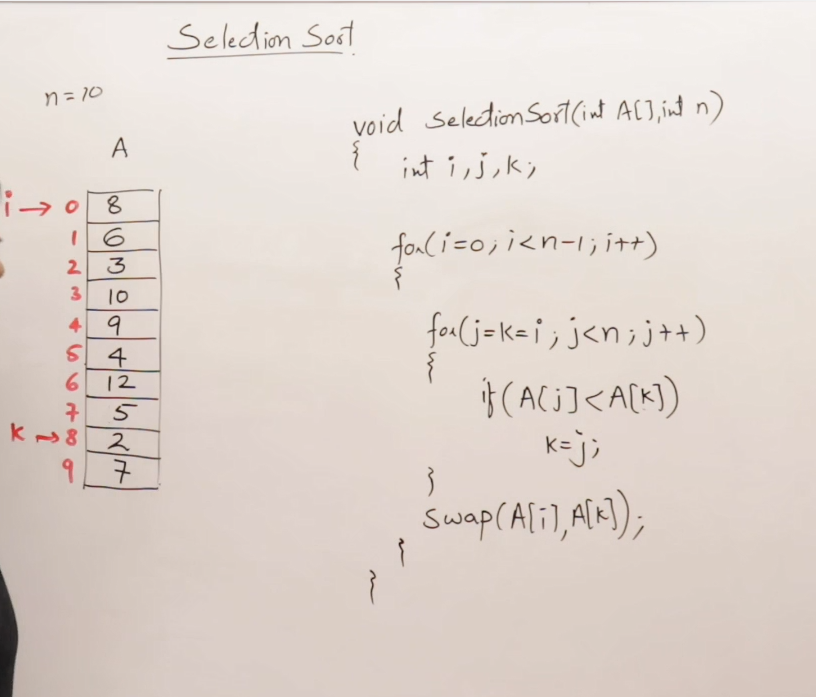 Selection Sort
n=10
A
i → 0 8
1 6
2 3
3 10
4 9
5 4
6 12
7 5
k → 8 2
9 7
void SelectionSort(int A[],int n)
{
int i,j,k;
for(i=0;i<n-1;i++)
{
for(j=k=i;j<n;j++)
{
if(A[j]<A[k])
k=j;
}
swap(A[i],A[k]);
}
}